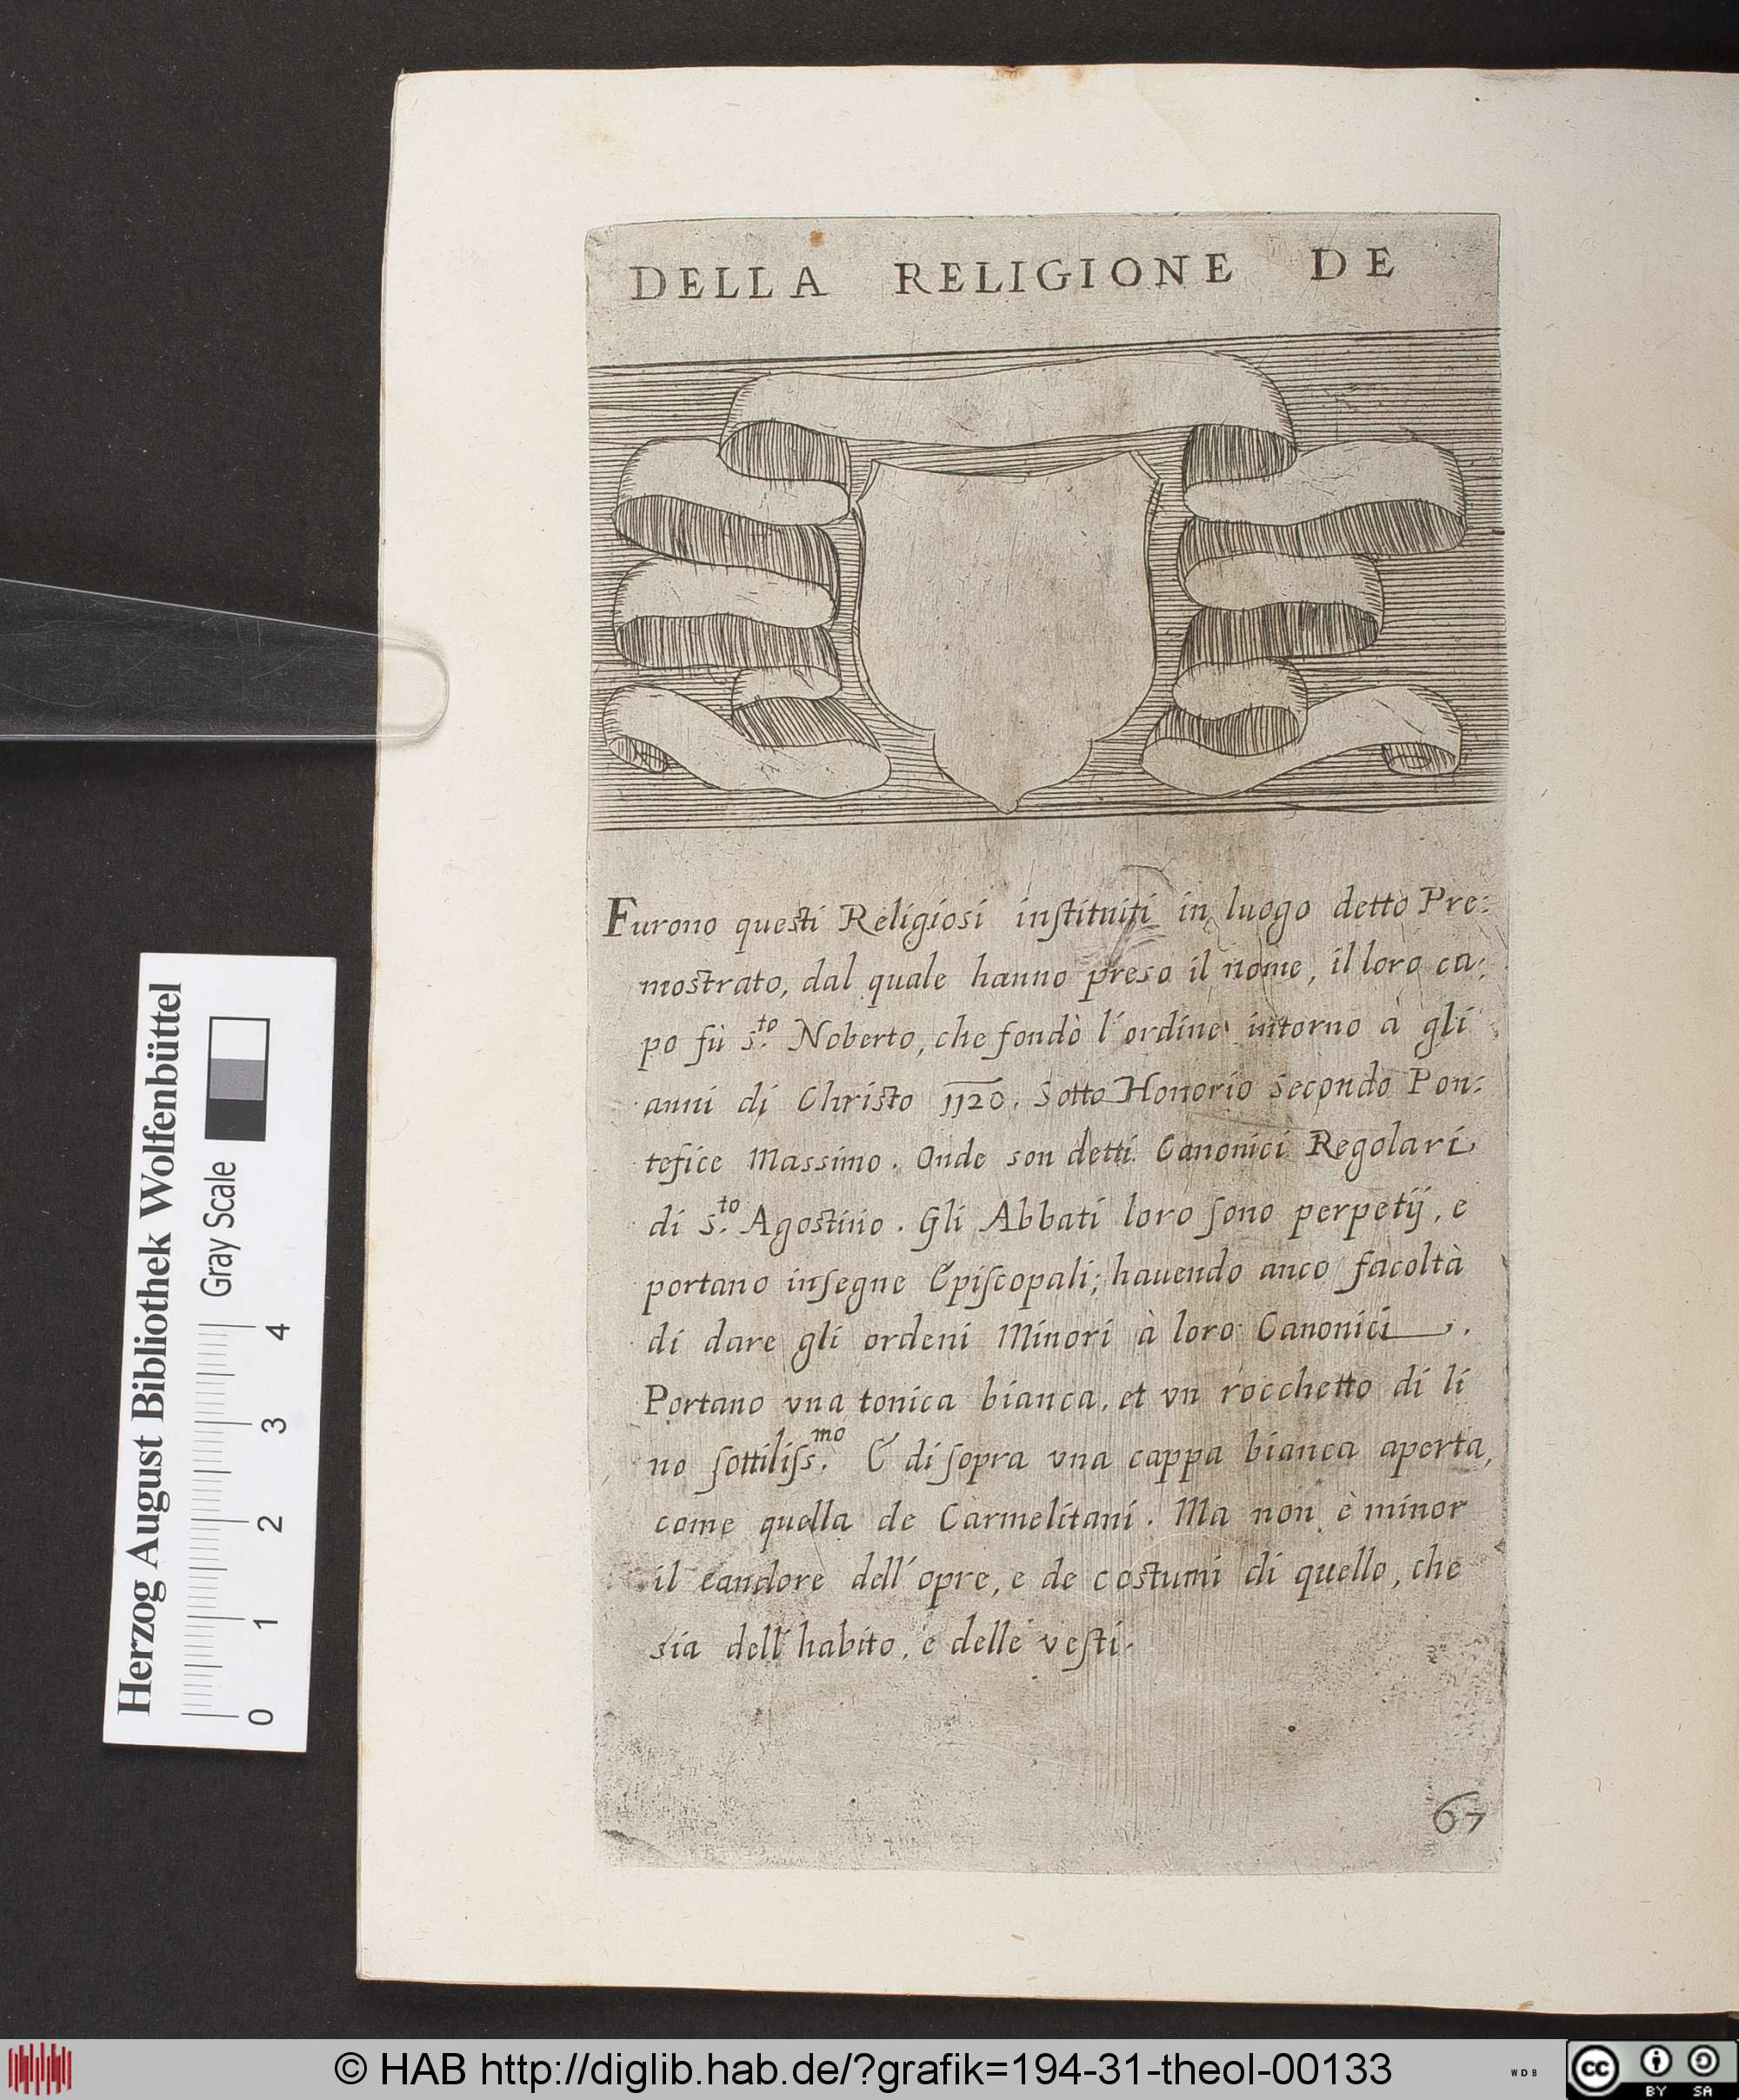 DELLA RELIGIONE DE
Furono questi Religiosi inſtituiti in luogo detto Pre:
mostrato, dal quale hanno preso il nome, il loro ca:
po fù s.to Noberto, che fondò l'ordine intorno à gli
anni di Christo 1120. Sotto Honorio secondo Pon:
tefice Massimo. Onde son detti Canonici Regolari
di s.to Agostino. Gli Abbati loro ſono perpetij, e
portano inſegne Epiſcopali; hauendo anco facoltà
di dare gli ordeni Minori à loro Canonici.
Portano vna tonica bianca, et vn rocchetto di li
no ſottiliſs.mo E di ſopra vna cappa bianca aperta,
come quella de Carmelitani. Ma non è minor
il candore dell'opre, e de costumi di quello, che
sia dell'habito, e delle veſti.
67
Herzog August Bibliothek Wolfenbüttel
Gray Scale
0 1 2 3 4
© HAB http://diglib.hab.de/?grafik=194-31-theol-00133
WDB
cc BY SA